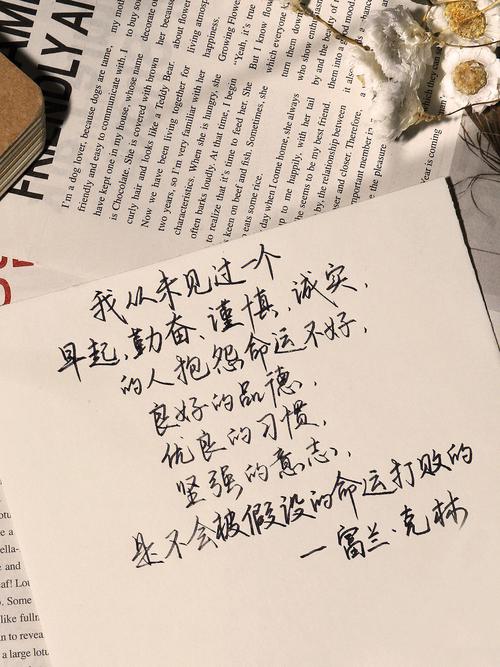 FRIENDLY AN
I'm a dog lover, because dogs are tame,
friendly and easy to communicate with. I
have kept one in my house, whose name
is Chocolate. She is covered with brown
curly hair and looks like a Teddy Bear.
Now we have been living together for
two years, so I'm very familiar with her
characteristics. When she is hungry, she
often barks loudly. At that time, I begin
to realize that it's time to feed her. She
keen on beef and fish. Sometimes, she
eats some rice.
day when I come home, she always
up to me happily, with her tail
she seems to be my best friend.
by, the relationship between
and closer. Therefore,
important member in
the pleasure
to buy
decorate
her because
about flower
living
happiness.
Growing
"Yeah, it's true
But I know
which everyone
turn them down
who show
by and the beauty of
them into a good mood.
Year is coming
我从未见过一个
早起,勤奋、谨慎,诚实,
的人抱怨命运不好,
良好的品德,
优良的习惯,
坚强的意志,
是不会被假设的命运打败的
—富兰·克林
e and
Some
a large